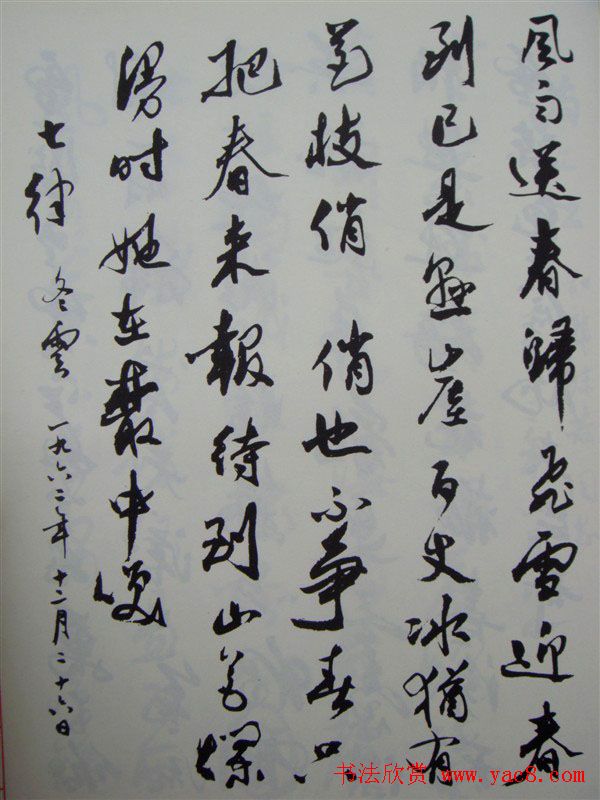 風雨送春歸飛雪迎春
到已是懸崖百丈冰猶有
花枝俏 俏也不爭春只
把春来報待到山花爛
漫时她在叢中笑
七律 冬雲 一九六二年十二月二十六日
书法欣赏
www.yac8.com